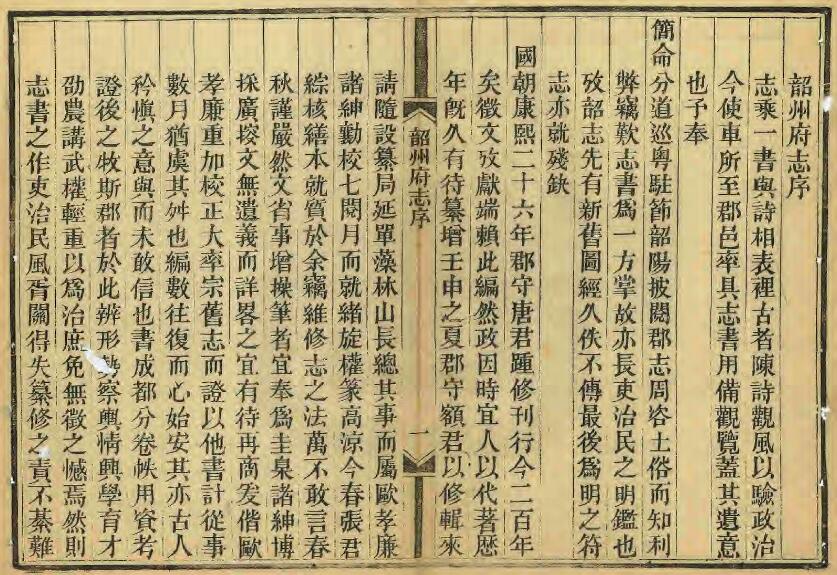 韶州府志序
志乘一書與詩相表裡古者陳詩觀風以驗政治
今使車所至郡邑率具志書用備觀覽蓋其遺意
也予奉
簡命分道巡粤駐節韶陽披閱郡志周咨土俗而知利
弊竊歎志書爲一方掌故亦長吏治民之明鑑也
攷韶志先有新舊圖經久佚不傳最後爲明之符
志亦就殘缺
國朝康熙二十六年郡守唐君踵修刊行今二百年
矣徵文攷獻端賴此編然政因時宜人以代著歷
年旣久有待纂增壬申之夏郡守額君以修輯來
韶州府志序
一
請隨設纂局延單藻林山長總其事而屬歐孝廉
諸紳勷校七閱月而就緒旋權篆高涼今春張君
綜核繕本就質於余竊維修志之法萬不敢言春
秋謹嚴然文省事增操筆者宜奉爲圭臬諸紳博
採廣搜文無遺義而詳畧之宜有待再商爰偕歐
孝廉重加校正大率宗舊志而證以他書計從事
數月猶虞其舛也編數往復而心始安其亦古人
矜愼之意與而未敢信也書成都分卷帙用資考
證後之牧斯郡者於此辨形勢察輿情興學育才
劭農講武權輕重以爲治庶免無徵之憾焉然則
志書之作吏治民風胥關得失纂修之責不綦難